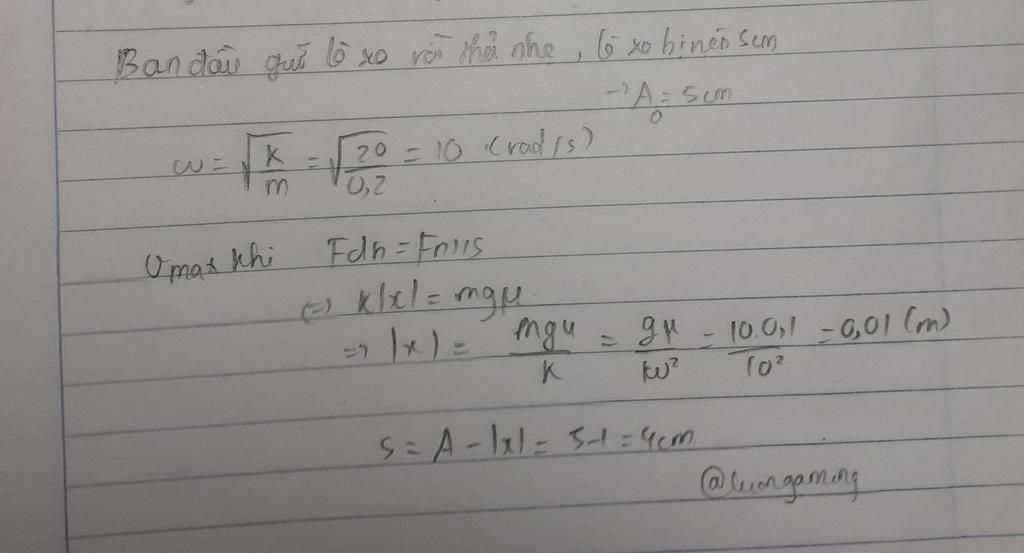 Ban đầu giữ lò xo rồi thả nhẹ, lò xo bị nén 5cm
→ A₀ = 5cm
ω = √(k/m) = √(20/0,2) = 10 (rad/s)
Vmax khi Fdh = Fms
⇔ k|x| = mgμ
⇒ |x| = mgμ/k = gμ/ω² = 10.0,1/10² = 0,01 (m)
S = A - |x| = 5-1 = 4cm